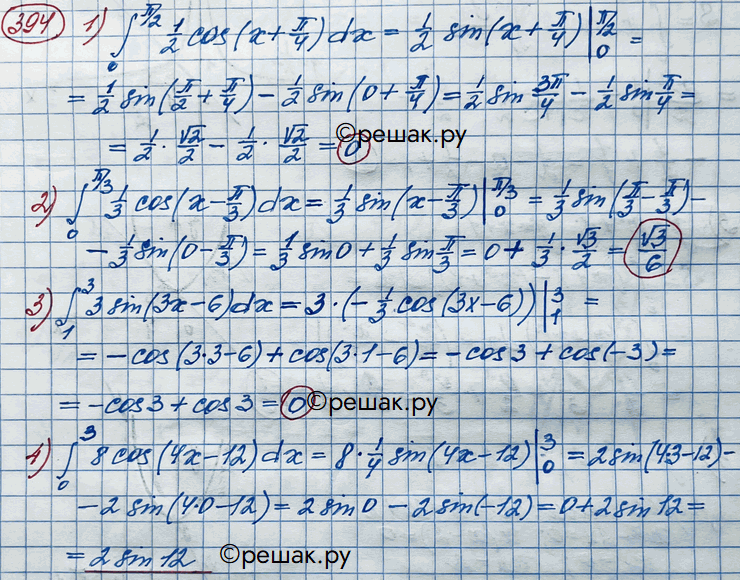 394 1) ∫₀^{π/2} 1/2 cos(x+π/4)dx = 1/2 sin(x+π/4)|₀^{π/2} =
= 1/2 sin(π/2+π/4) - 1/2 sin(0+π/4) = 1/2 sin 3π/4 - 1/2 sin π/4 =
= 1/2 · √2/2 - 1/2 · √2/2 = 0
©решак.ру
2) ∫₀^{π/3} 1/3 cos(x-π/3)dx = 1/3 sin(x-π/3)|₀^{π/3} = 1/3 sin(π/3-π/3) -
- 1/3 sin(0-π/3) = 1/3 sin 0 + 1/3 sin π/3 = 0 + 1/3 · √3/2 = √3/6
3) ∫₁^3 3 sin(3x-6)dx = 3·(-1/3 cos(3x-6))|₁^3 =
= -cos(3·3-6) + cos(3·1-6) = -cos 3 + cos(-3) =
= -cos 3 + cos 3 = 0 ©решак.ру
4) ∫₀^3 8 cos(4x-12)dx = 8·1/4 sin(4x-12)|₀^3 = 2 sin(4·3-12) -
- 2 sin(4·0-12) = 2 sin 0 - 2 sin(-12) = 0 + 2 sin 12 =
= 2 sin 12 ©решак.ру